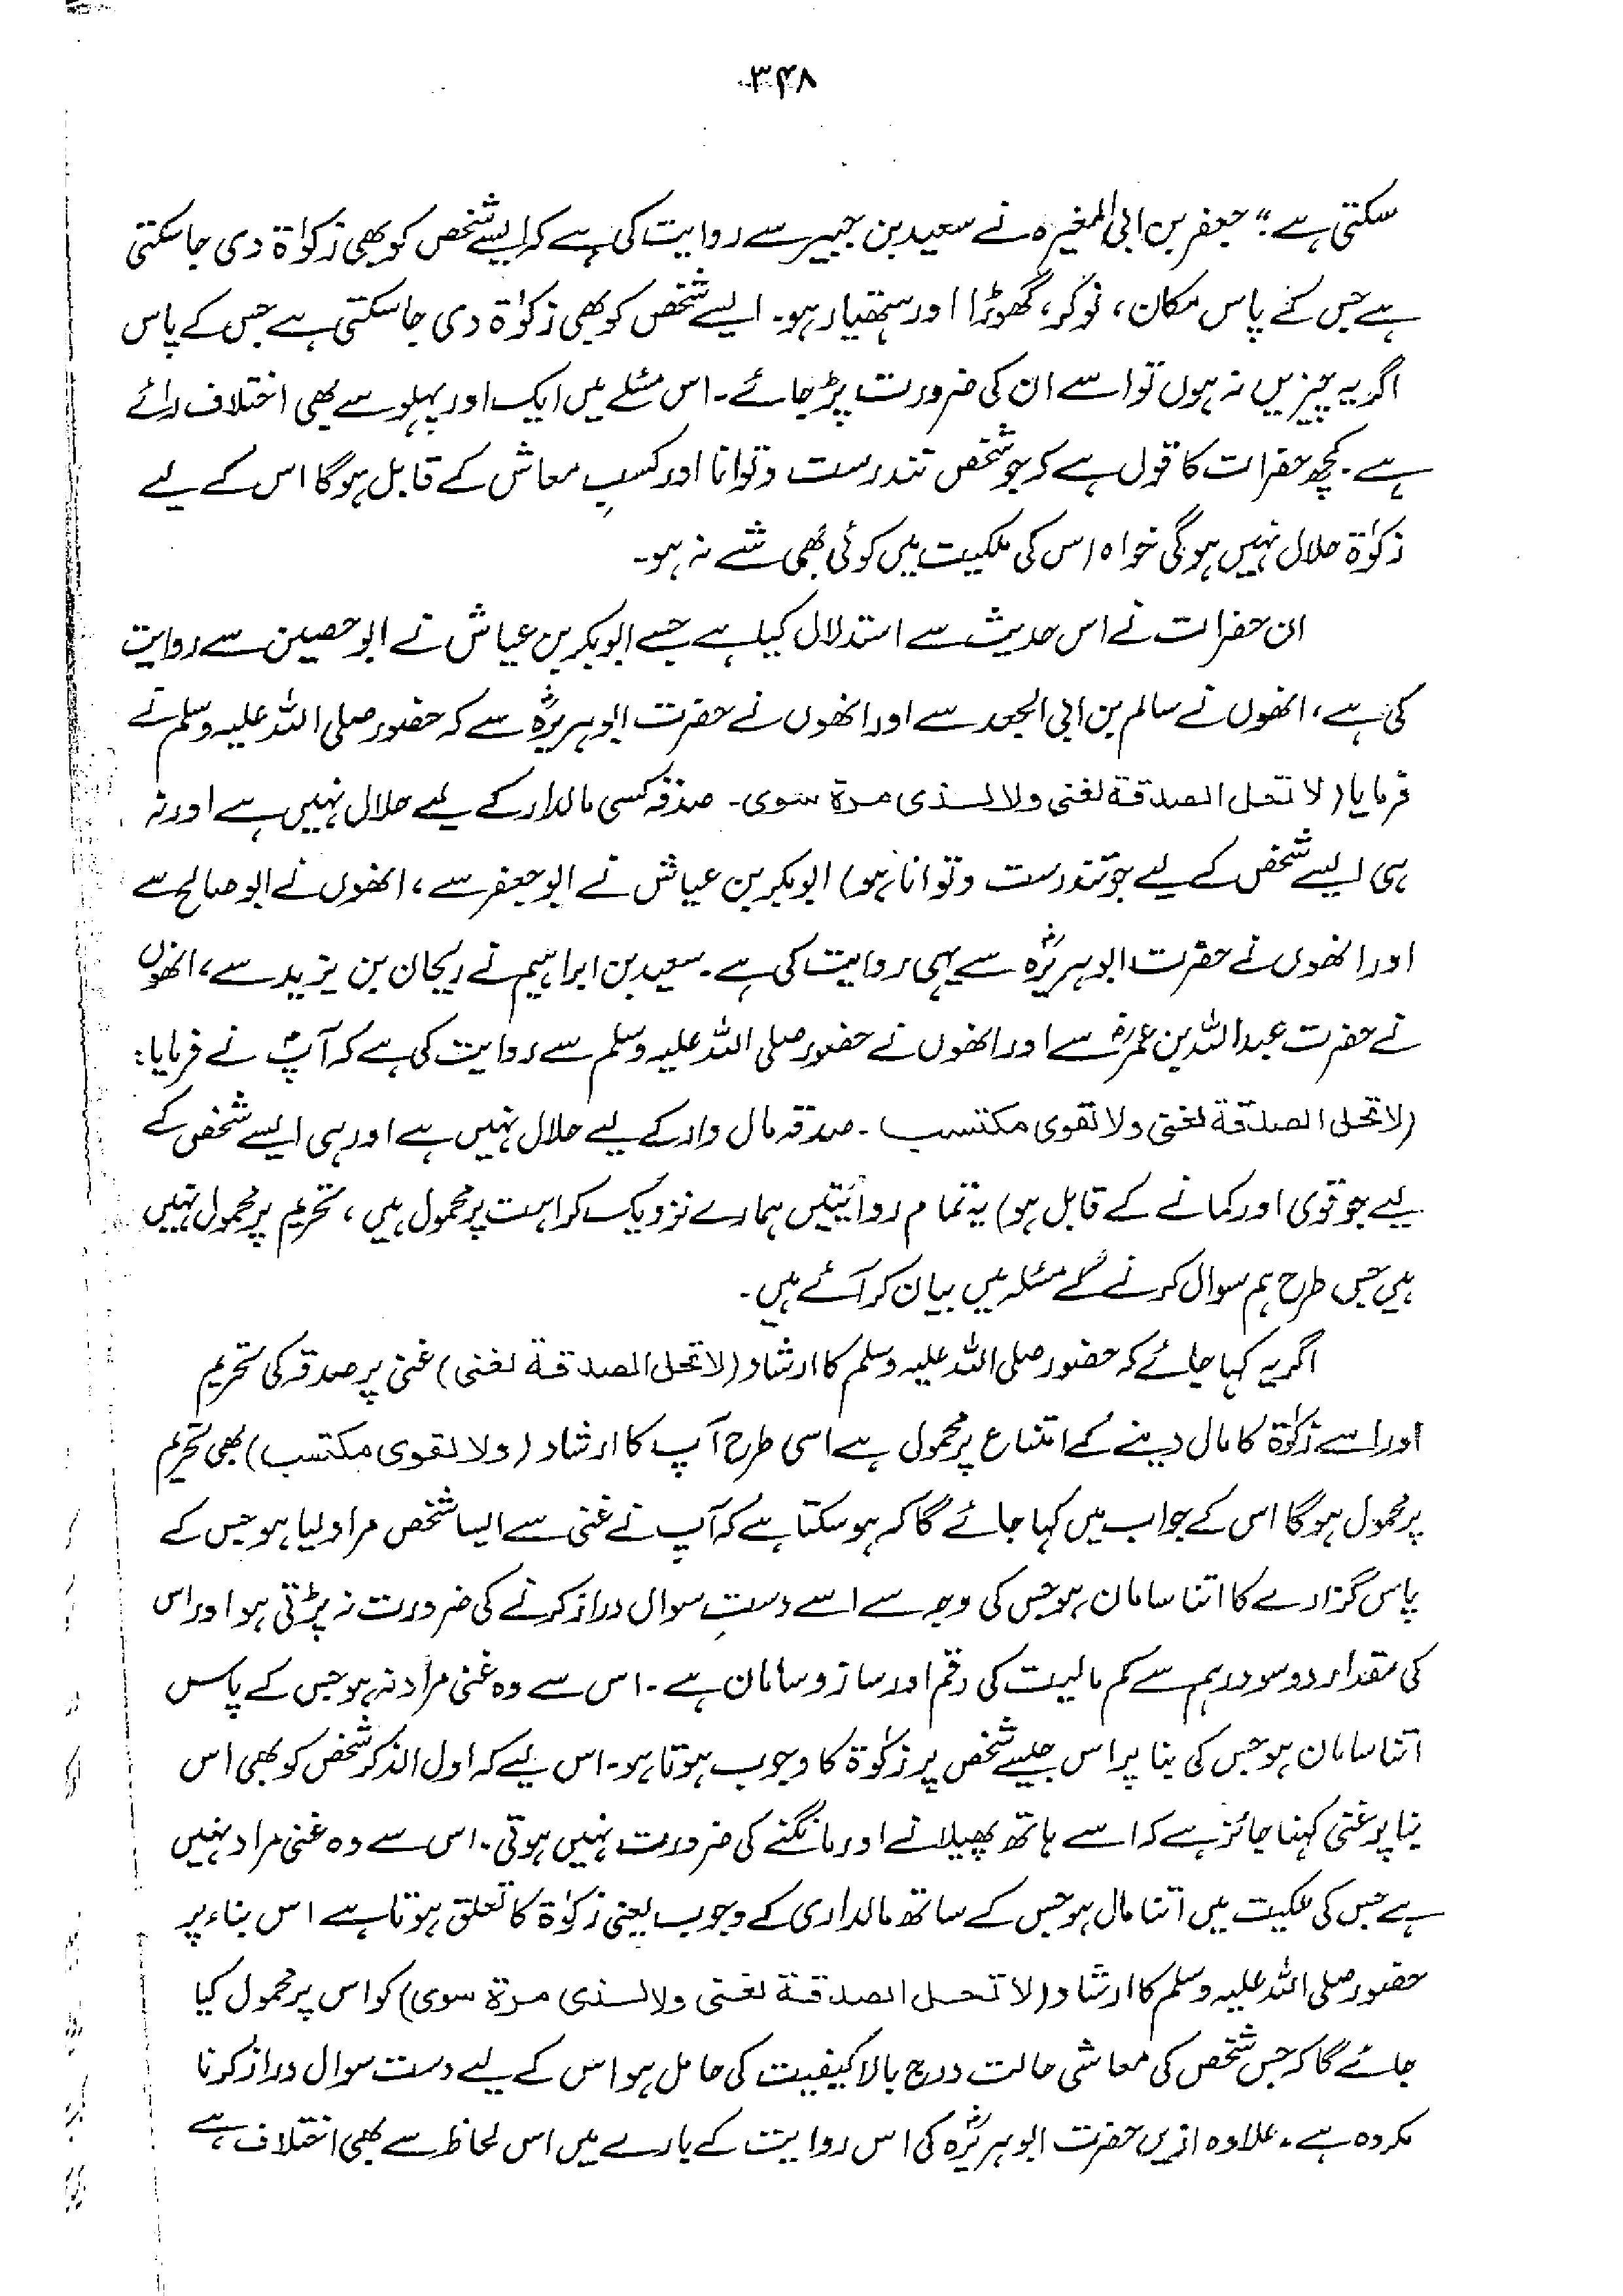 ۳۴۸
سکتی ہے؛" جعفر بن ابی المغیرہ نے سعید بن جبیر سے روایت کی ہے کہ ایسے شخص کو بھی زکوٰۃ دی جا سکتی
ہے جس کے پاس مکان، نوکر، گھوڑا اور ہتھیار ہو۔ ایسے شخص کو بھی زکوٰۃ دی جا سکتی ہے جس کے پاس
اگر یہ چیزیں نہ ہوں تو اسے ان کی ضرورت پڑ جائے۔ اس مسئلے میں ایک اور پہلو سے بھی اختلاف رائے
ہے۔ کچھ حضرات کا قول ہے کہ جو شخص تندرست و توانا اور کسبِ معاش کے قابل ہو گا اس کے لیے
زکوٰۃ حلال نہیں ہو گی خواہ اس کی ملکیت میں کوئی بھی شے نہ ہو۔
ان حضرات نے اس حدیث سے استدلال کیا ہے جسے ابوبکر بن عیاش نے ابو حصین سے روایت
کی ہے، انھوں نے سالم بن ابی الجعد سے اور انھوں نے حضرت ابو ہریرہؓ سے کہ حضور صلی اللہ علیہ وسلم نے
فرمایا (لا تحل الصدقة لغنی ولا لذی مرة سوی۔ صدقہ کسی مالدار کے لیے حلال نہیں ہے اور نہ
ہی ایسے شخص کے لیے جو تندرست و توانا ہو) ابوبکر بن عیاش نے ابو جعفر سے، انھوں نے ابو صالح سے
اور انھوں نے حضرت ابو ہریرہؓ سے یہی روایت کی ہے۔ سعید بن ابراہیم نے ریحان بن یزید سے، انھوں
نے حضرت عبداللہ بن عمرؓ سے اور انھوں نے حضور صلی اللہ علیہ وسلم سے روایت کی ہے کہ آپؐ نے فرمایا:
(لا تحل الصدقة لغنی ولا لقوی مکتسب۔ صدقہ مال دار کے لیے حلال نہیں ہے اور ہی ایسے شخص کے
لیے جو قوی اور کمانے کے قابل ہو) یہ تمام روائیتیں ہمارے نزدیک کراہت پر محمول ہیں، تحریم پر محمول نہیں
ہیں جس طرح ہم سوال کرنے کے مسئلہ میں بیان کر آئے ہیں۔
اگر یہ کہا جائے کہ حضور صلی اللہ علیہ وسلم کا ارشاد (لا تحل الصدقة لغنی) غنی پر صدقہ کی تحریم
اور اسے زکوٰۃ کا مال دینے کے امتناع پر محمول ہے اسی طرح آپ کا ارشاد (ولا لقوی مکتسب) بھی تحریم
پر محمول ہو گا اس کے جواب میں کہا جائے گا کہ ہو سکتا ہے کہ آپ نے غنی سے ایسا شخص مراد لیا ہو جس کے
پاس گزارے کا اتنا سامان ہو جس کی وجہ سے اسے دستِ سوال دراز کرنے کی ضرورت نہ پڑتی ہو اور اس
کی مقدار دو سو درہم سے کم مالیت کی رقم اور ساز و سامان ہے۔ اس سے وہ غنی مراد نہ ہو جس کے پاس
اتنا سامان ہو جس کی بنا پر اس جیسے شخص پر زکوٰۃ کا وجوب ہوتا ہو۔ اس لیے کہ اول الذکر شخص کو بھی اس
بنا پر غنی کہنا جائز ہے کہ اسے ہاتھ پھیلانے اور مانگنے کی ضرورت نہیں ہوتی۔ اس سے وہ غنی مراد نہیں
ہے جس کی ملکیت میں اتنا مال ہو جس کے ساتھ مالداری کے وجوب یعنی زکوٰۃ کا تعلق ہوتا ہے اس بناء پر
حضور صلی اللہ علیہ وسلم کا ارشاد (لا تحل الصدقة لغنی ولا لذی مرة سوی) کو اس پر محمول کیا
جائے گا کہ جس شخص کی معاشی حالت درج بالا کیفیت کی حامل ہو اس کے لیے دست سوال دراز کرنا
مکروہ ہے۔ علاوہ ازیں حضرت ابو ہریرہؓ کی اس روایت کے بارے میں اس لحاظ سے بھی اختلاف ہے